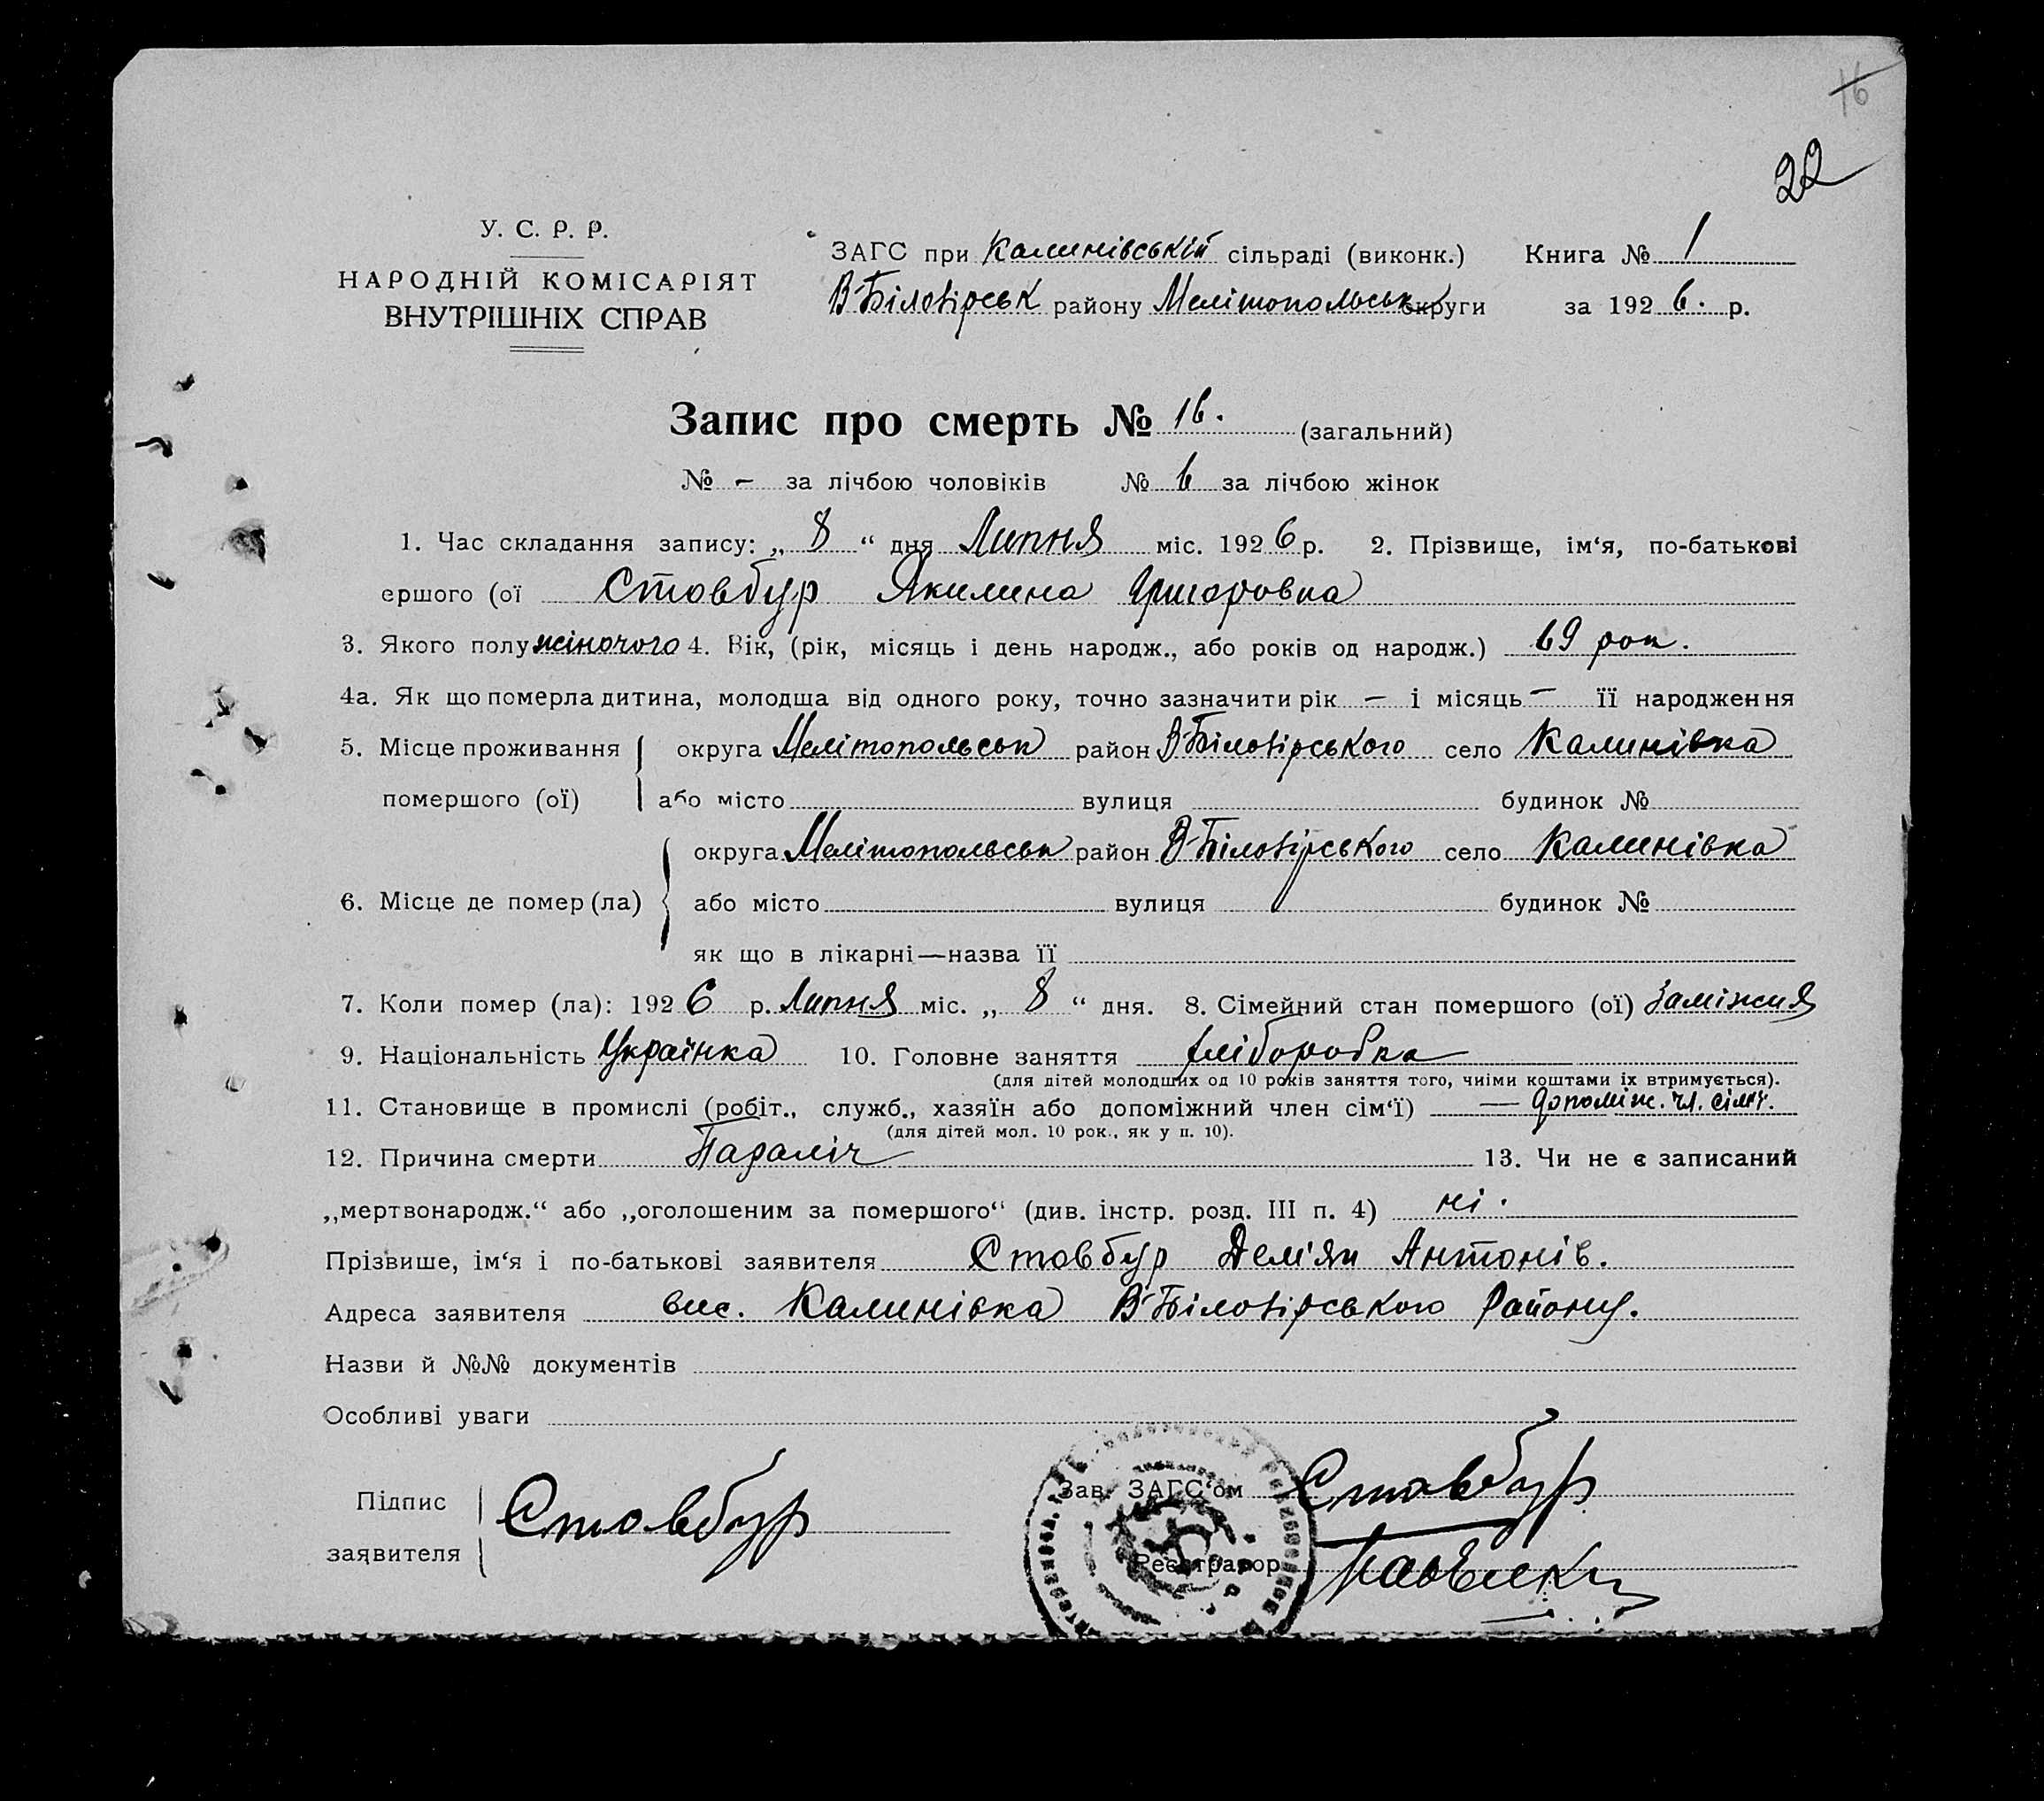 16
22
У. С. Р. Р.
НАРОДНІЙ КОМІСАРІЯТ
ВНУТРІШНІХ СПРАВ
ЗАГС при Калинівській сільраді (виконк.) Книга № 1
В-Білозірськ району Мелітопольськ округи за 1926. р.
Запис про смерть № 16. (загальний)
№ – за лічбою чоловіків № 6 за лічбою жінок
1. Час складання запису: „ 8 “ дня Липня міс. 1926 р. 2. Прізвище, ім‘я, по-батькові
ершого (ої Стовбур Якилина Григоровна
3. Якого полу жіночого 4. Вік, (рік, місяць і день народж., або років од народж.) 69 рок.
4а. Як що померла дитина, молодша від одного року, точно зазначити рік – і місяць – її народження
5. Місце проживання округа Мелітопольськ район В-Білозірського село Калинівка
помершого (ої) або місто вулиця будинок №
округа Мелітопольськ район В-Білозірського село Калинівка
6. Місце де помер (ла) або місто вулиця будинок №
як що в лікарні—назва її
7. Коли помер (ла): 1926 р. Липня міс. „ 8 “ дня. 8. Сімейний стан помершого (ої) Заміжня
9. Національність Українка 10. Головне заняття хліборобка
(для дітей молодших од 10 років заняття того, чиїми коштами їх втримується).
11. Становище в промислі (робіт., служб., хазяїн або допоміжний член сім‘ї) — допоміж. чл. сім'ї.
(для дітей мол. 10 рок., як у п. 10).
12. Причина смерти Параліч 13. Чи не є записаний
„мертвонародж.“ або „оголошеним за помершого“ (див. інстр. розд. III п. 4) ні.
Прізвише, ім‘я і по-батькові заявителя Стовбур Дем'ян Антонів.
Адреса заявителя вис. Калинівка В-Білозірського Району.
Назви й №№ документів
Особливі уваги
Підпис Стовбур Зав. ЗАГС‘ом Стовбур
заявителя Реєстратор